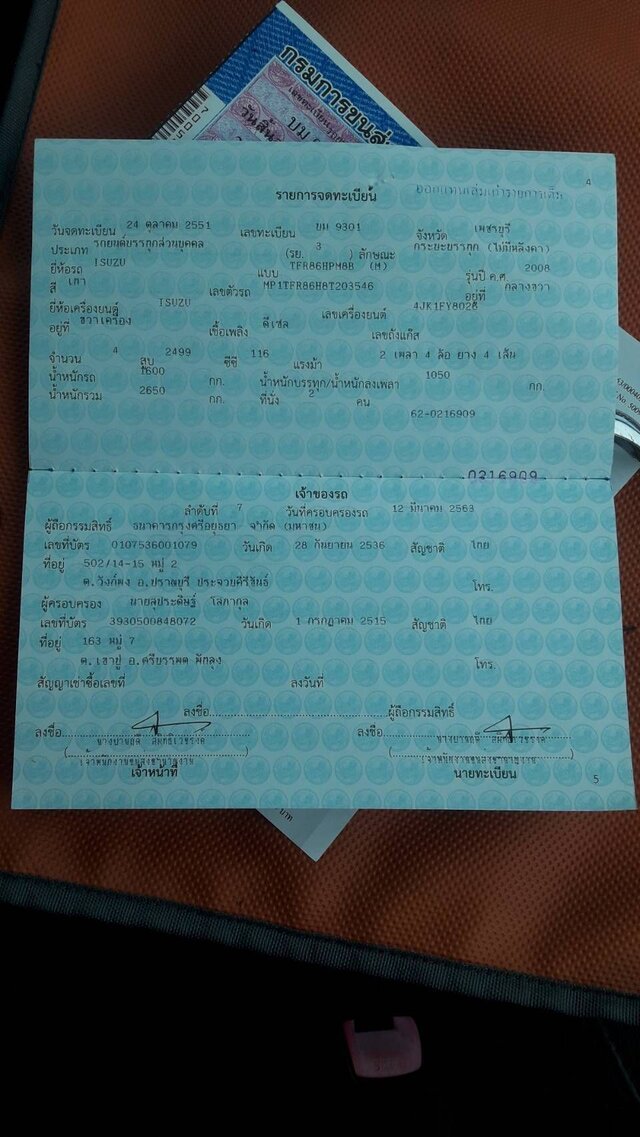 กรมการขนส่ง
รายการจดทะเบียน
4
วันจดทะเบียน 24 ตุลาคม 2551 เลขทะเบียน บม 9301 จังหวัด เพชรบุรี
ประเภท รถยนต์บรรทุกส่วนบุคคล (รย. 3 ) ลักษณะ กระบะบรรทุก (ไม่มีหลังคา)
ยี่ห้อรถ ISUZU แบบ TFR86HPM8B (M) รุ่นปี ค.ศ. 2008
สี เทา เลขตัวรถ MP1TFR86H8T203546 อยู่ที่ กลางขวา
ยี่ห้อเครื่องยนต์ ISUZU เลขเครื่องยนต์ 4JK1FY8026
อยู่ที่ ขวาเครื่อง เชื้อเพลิง ดีเซล เลขถังแก๊ส
จำนวน 4 สูบ 2499 ซีซี 116 แรงม้า 2 เพลา 4 ล้อ ยาง 4 เส้น
น้ำหนักรถ 1600 กก. น้ำหนักบรรทุก/น้ำหนักลงเพลา 1050 กก.
น้ำหนักรวม 2650 กก. ที่นั่ง 2 คน
62-0216909
0216909
เจ้าของรถ
ลำดับที่ 7 วันที่ครอบครองรถ 12 มีนาคม 2563
ผู้ถือกรรมสิทธิ์ ธนาคารกรุงศรีอยุธยา จำกัด (มหาชน)
เลขที่บัตร 0107536001079 วันเกิด 28 กันยายน 2536 สัญชาติ ไทย
ที่อยู่ 502/14-15 หมู่ 2
ต.วังก์พง อ.ปราณบุรี ประจวบคีรีขันธ์ โทร.
ผู้ครอบครอง นายสุประดิษฐ์ โสภากุล
เลขที่บัตร 3930500848072 วันเกิด 1 กรกฎาคม 2515 สัญชาติ ไทย
ที่อยู่ 163 หมู่ 7
ต.เขาปู่ อ.ศรีบรรพต พัทลุง โทร.
สัญญาเช่าซื้อเลขที่ ลงวันที่
ลงชื่อ ผู้ถือกรรมสิทธิ์
ลงชื่อ ลงชื่อ
เจ้าหน้าที่ นายทะเบียน
5